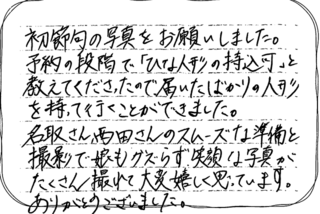 初節句の写真をお願いしました。
予約の段階で「ひな人形の持込可」と
教えてくださったので届いたばかりの人形
を持って行くことができました。
名取さん、西田さんのスムーズな準備と
撮影で娘もグズらず笑顔な写真が
たくさん撮れて大変嬉しく思っています。
ありがとうございました。